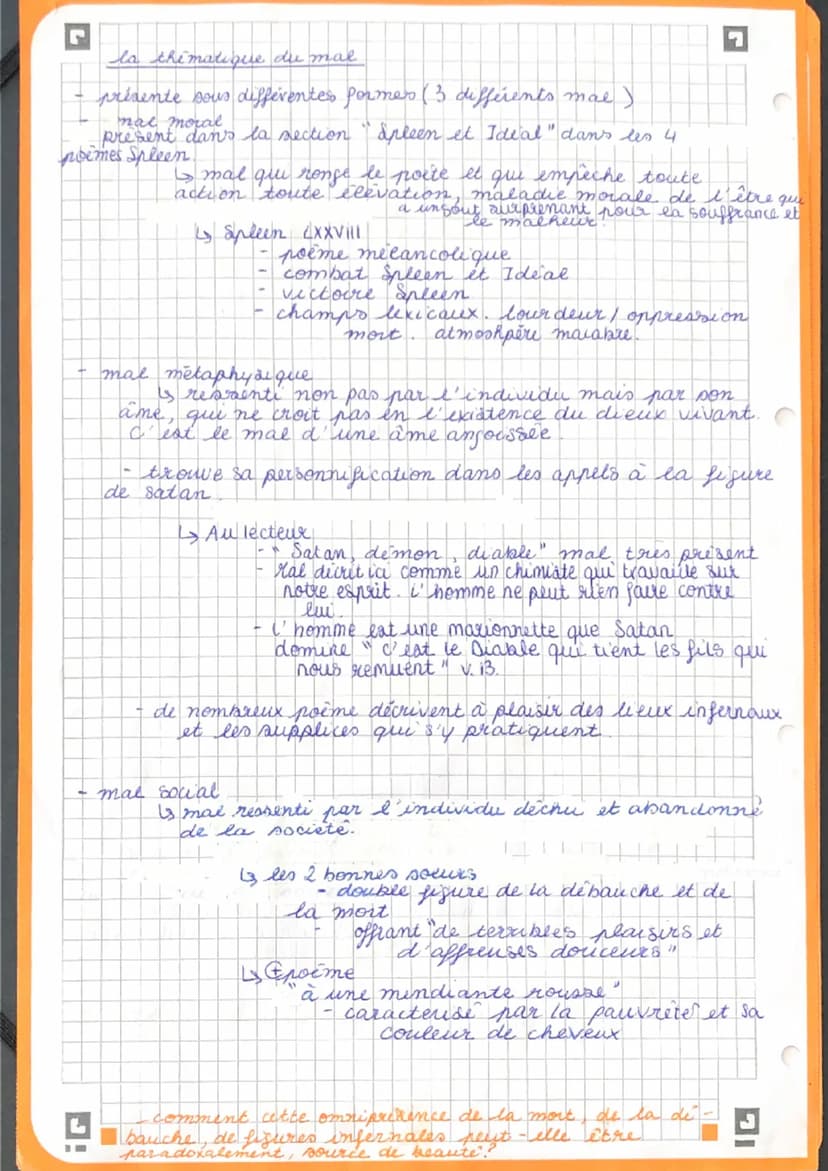 la thématique du mal
- présente sous différentes formes (3 différents mal)
- mal moral
présent dans la section "Spleen et Idéal" dans les 4
poèmes Spleen.
↳ mal qui ronge le poète et qui empêche toute
action toute élévation, maladie morale de l'être qui
a un goût surprenant pour la souffrance et
le malheur.
↳ Spleen LXXVIII
- poème mélancolique
- combat Spleen et Idéal
- victoire Spleen
- champs lexicaux. lourdeur / oppression
mort. atmoshpère macabre.
- mal métaphysique
↳ ressenti non pas par l'individu mais par son
âme, qui ne croit pas en l'existence du dieux vivant.
C'est le mal d'une âme angoissée.
- trouve sa personnification dans les appels à la figure
de satan.
↳ Au lecteur
- "Satan, démon, diable" mal très présent
- Mal décrit ici comme un chimiste qui travaille sur
notre esprit. L'homme ne peut rien faire contre
lui.
- L'homme est une marionnette que Satan
domine "C'est le Diable qui tient les fils qui
nous remuent" v.13.
- de nombreux poème décrivent à plaisir des lieux infernaux
et les supplices qui s'y pratiquent
- mal social
↳ mal ressenti par l'individu déchu et abandonné
de la société.
↳ les 2 bonnes soeurs
- double figure de la débauche et de
la mort
- offrant "de terribles plaisirs et
d'affreuses douceurs"
↳ poème
"à une mendiante rousse"
- caractérisé par la pauvreté et sa
couleur de cheveux
- comment cette omniprésence de la mort, de la dé-
bauche, de figures infernales peut-elle être
paradoxalement, source de beauté?